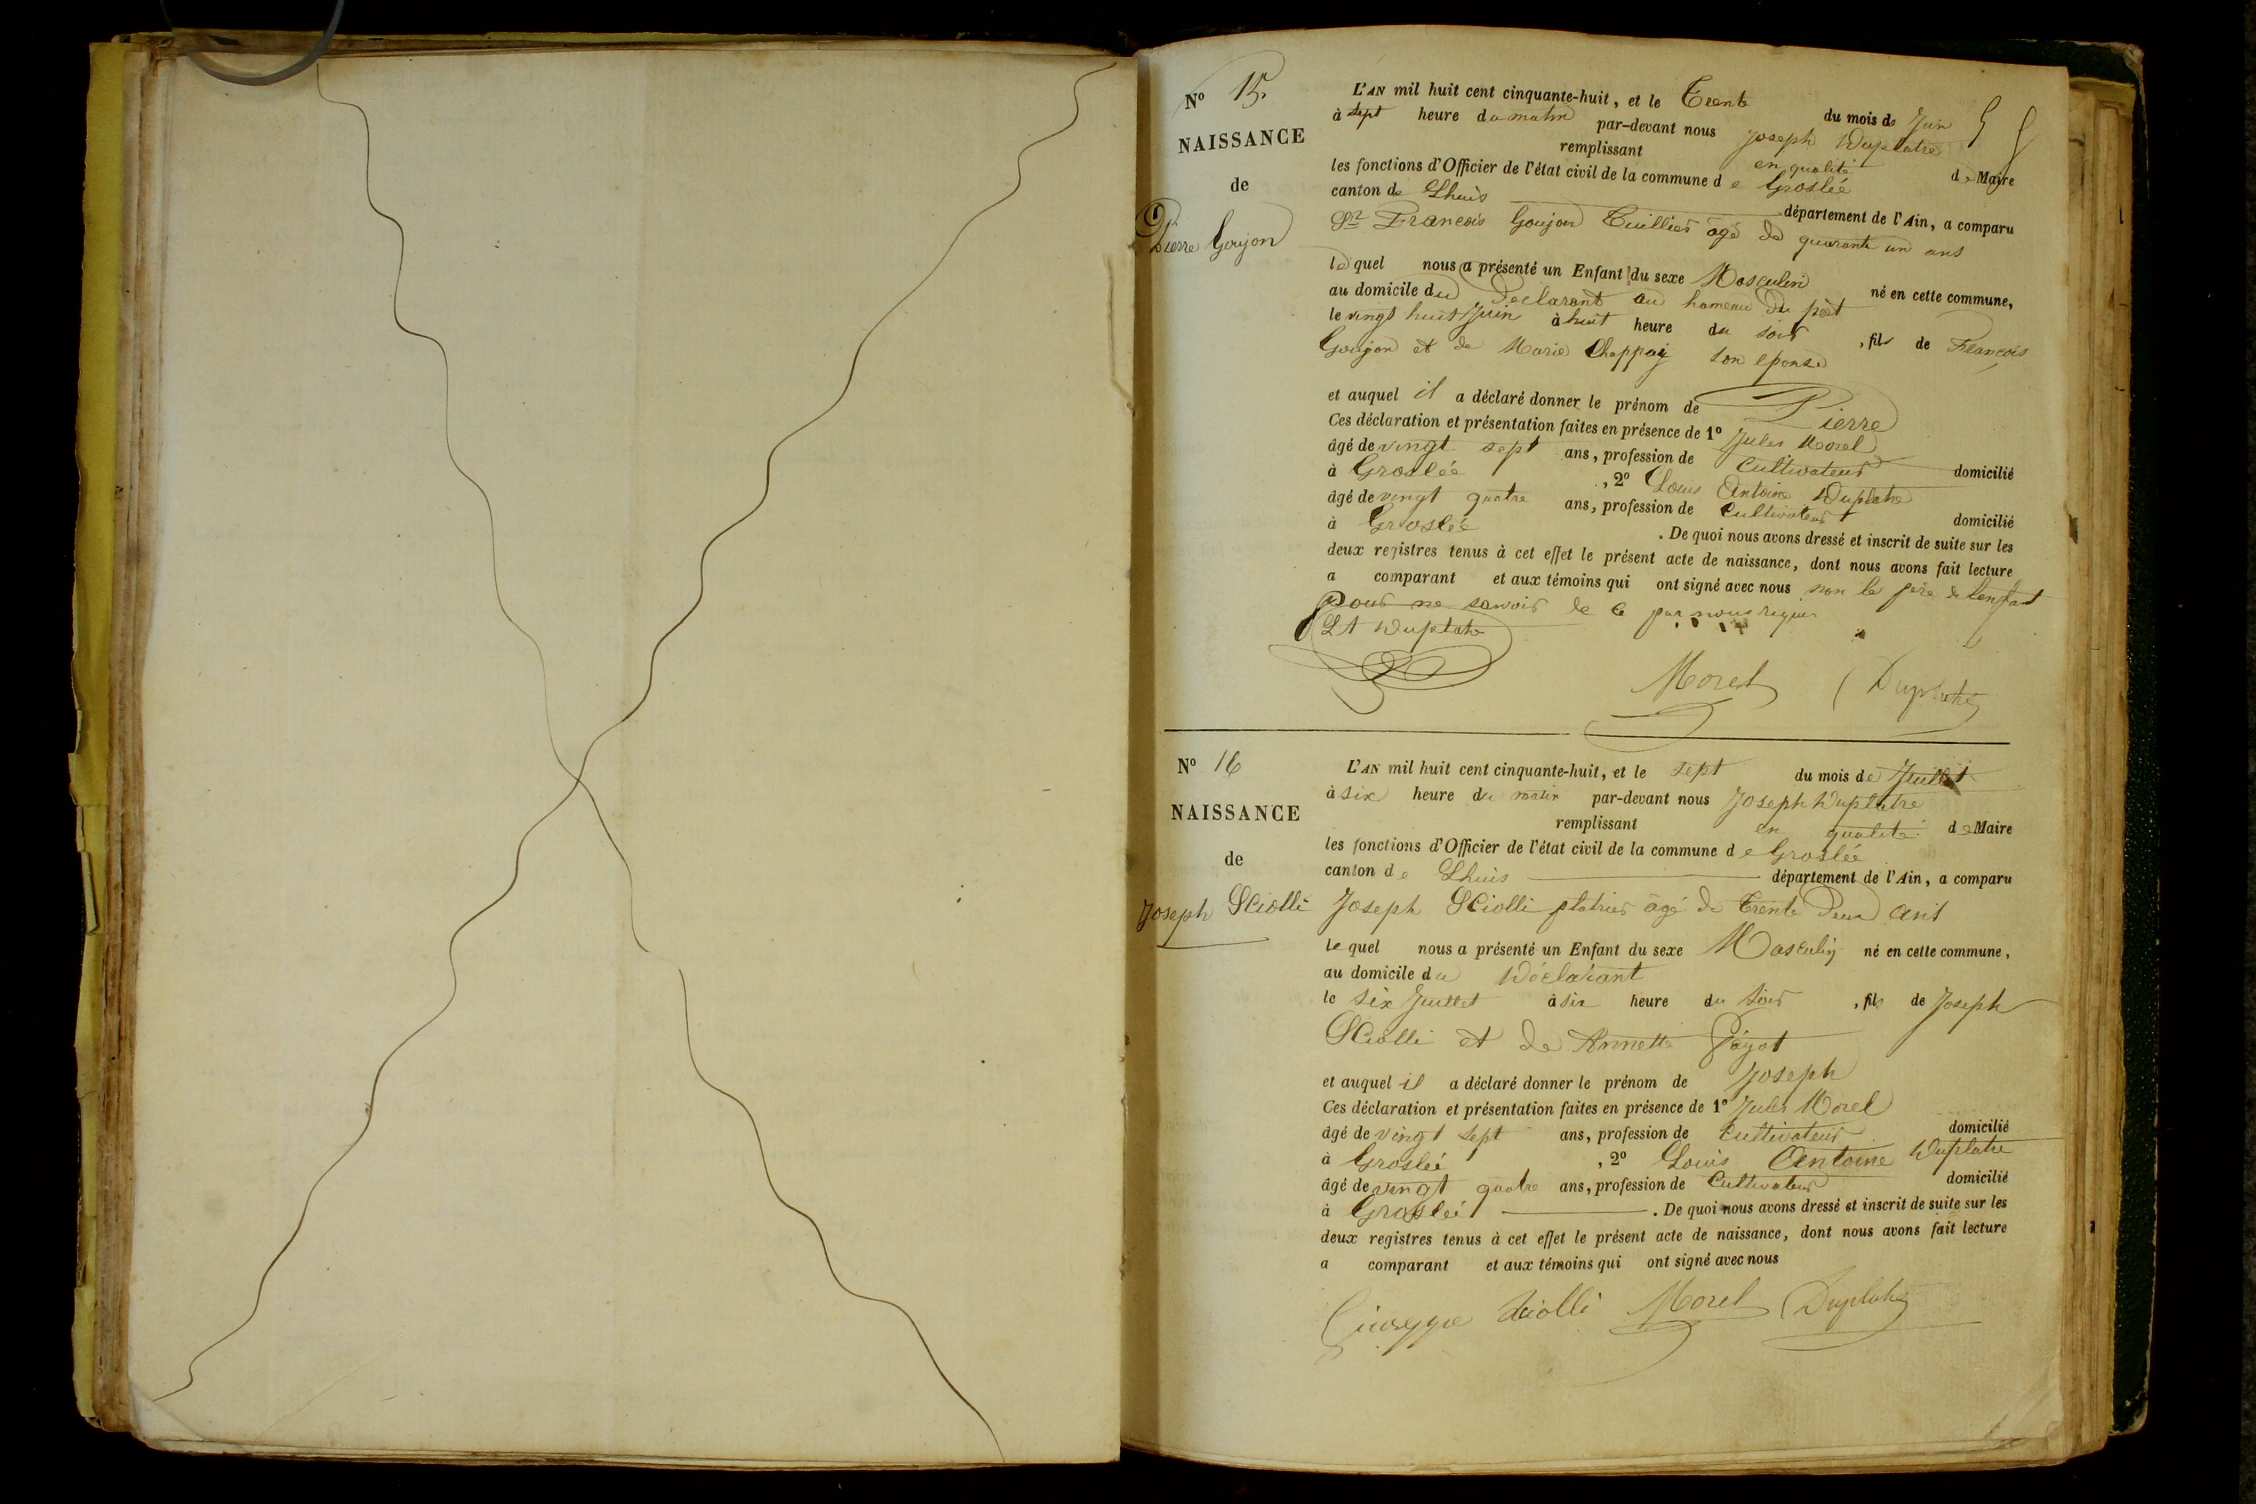 N° 15
NAISSANCE
de
Pierre Goujon
L'AN mil huit cent cinquante-huit, et le Trente du mois de Juin
à sept heure du matin par-devant nous Joseph Duplatre
remplissant en qualité de Maire
les fonctions d'Officier de l'état civil de la commune de Groslée
canton de Lhuis département de l'Ain, a comparu
Sr Francois Goujon Tuillier agé de quarante un ans
le quel nous a présenté un Enfant du sexe Masculin né en cette commune,
au domicile du Déclarant au hameau du port
le vingt huit Juin à huit heure du soir, fils de Francois
Goujon et de Marie Chappay son epouse
et auquel il a déclaré donner le prénom de Pierre
Ces déclaration et présentation faites en présence de 1° Jules Morel
âgé de vingt sept ans, profession de Cultivateur domicilié
à Groslée, 2° Louis Antoine Duplatre
âgé de vingt quatre ans, profession de Cultivateur domicilié
à Groslée. De quoi nous avons dressé et inscrit de suite sur les
deux registres tenus à cet effet le présent acte de naissance, dont nous avons fait lecture
a comparant et aux témoins qui ont signé avec nous non le père de l'enfant
pour ne savoir de ce par nous requis
LA Duplatre
Morel Duplatre
N° 16
NAISSANCE
de
Joseph Sciolli
L'AN mil huit cent cinquante-huit, et le sept du mois de Juillet
à six heure du matin par-devant nous Joseph Duplatre
remplissant en qualité de Maire
les fonctions d'Officier de l'état civil de la commune de Groslée
canton de Lhuis département de l'Ain, a comparu
Joseph Sciolli platrier agé de Trente Deux ans
le quel nous a présenté un Enfant du sexe Masculin né en cette commune,
au domicile du Déclarant
le six Juillet à six heure du soir, fils de Joseph
Sciolli et de Annette Payot
et auquel il a déclaré donner le prénom de Joseph
Ces déclaration et présentation faites en présence de 1° Jules Morel
âgé de vingt sept ans, profession de Cultivateur domicilié
à Groslée, 2° Louis Antoine Duplatre
âgé de vingt quatre ans, profession de Cultivateur domicilié
à Groslée. De quoi nous avons dressé et inscrit de suite sur les
deux registres tenus à cet effet le présent acte de naissance, dont nous avons fait lecture
a comparant et aux témoins qui ont signé avec nous
Giuseppe Sciolli Morel Duplatre